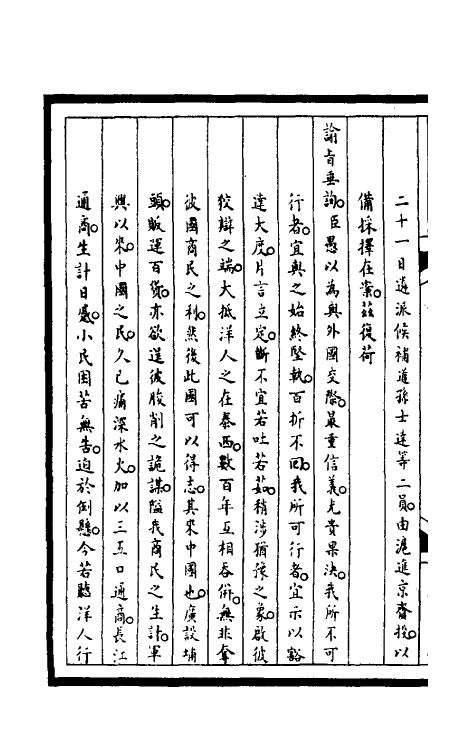 二十一日遴派候補道孫士達等二員。由滬進京齎投。以
備採擇在案。茲復荷
諭旨垂詢。臣愚以為與外國交際。最重信義。尤貴果決。我所不可
行者。宜與之始終堅執。百折不回。我所可行者。宜示以豁
達大度。片言立定。斷不宜若吐若茹。稍涉猶豫之象。啟彼
狡辯之端。大抵洋人之在泰西。數百年互相吞併。無非奪
彼國商民之利。然後此國可以得志。其來中國也。廣設埔
頭。販運百貨。亦欲逞彼朘削之詭謀。隘我商民之生計。軍
興以來。中國之民。久已痛深水火。加以三五口通商。長江
通商。生計日蹙。小民困苦無告。迫於倒懸。今若聽洋人行